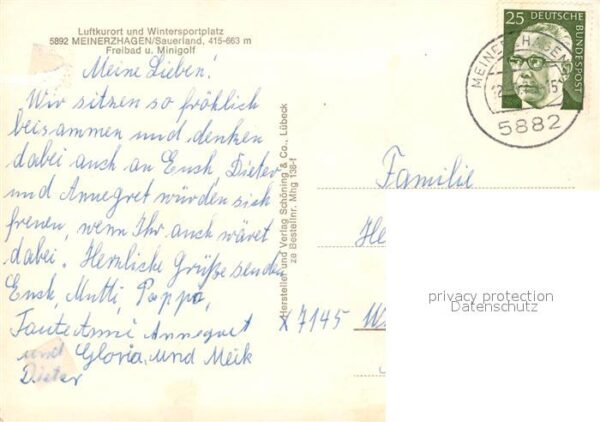 Luftkurort und Wintersportplatz
5892 MEINERZHAGEN/Sauerland, 415-663 m
Freibad u. Minigolf
Meine Lieben!
Wir sitzen so fröhlich
beisammen und denken
dabei auch an Euch, Dieter
und Annegret würden sich
freuen, wenn Ihr auch wäret
dabei. Herzliche Grüße senden
Euch, Mutti, Pappa,
Tante Anni Annegret
und Gloria, und Meik
Dieter
Hersteller und Verlag Schöning & Co., Lübeck
ze Bestellnr. Mhg 138-f
25 DEUTSCHE
BUNDESPOST
MEINERZHAGEN
5882
Familie
He
x 7145
privacy protection
Datenschutz